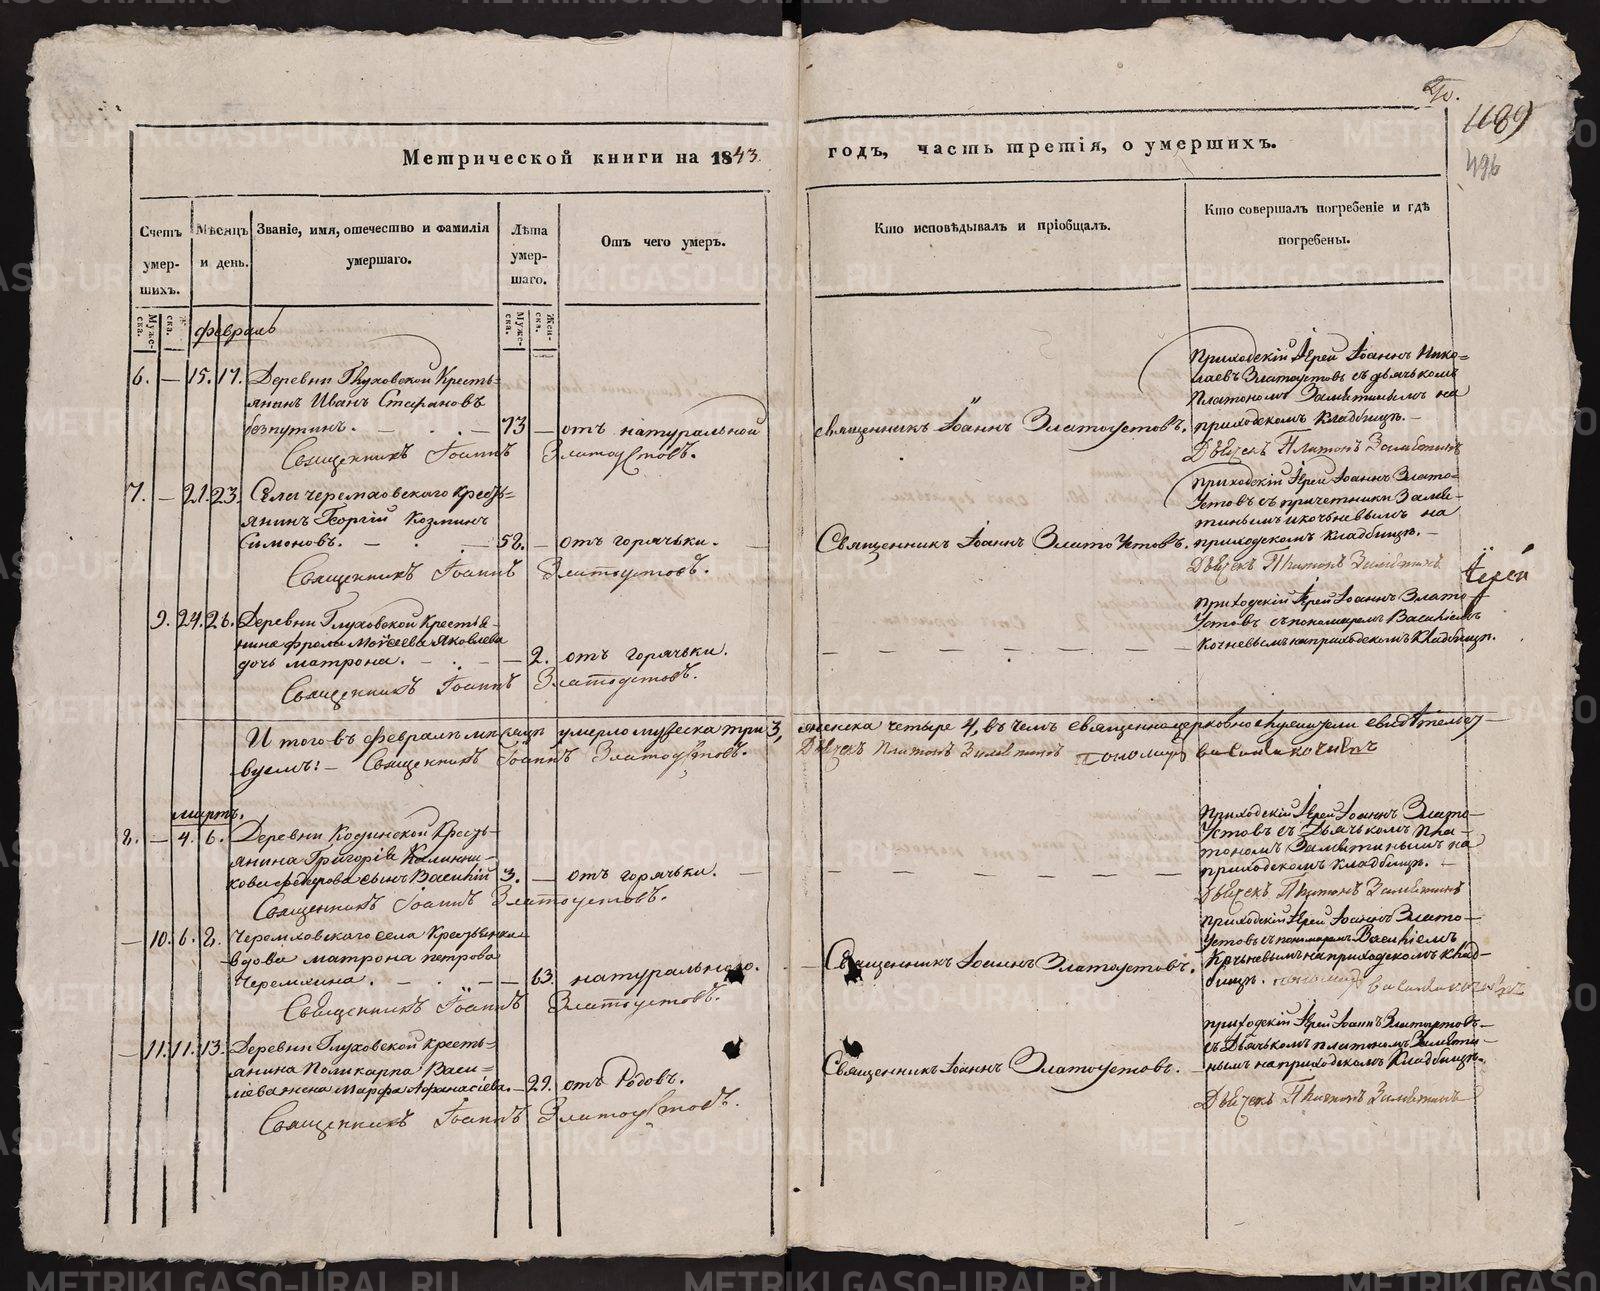 1189
496
Метрической книги на 1843
годъ, часть третія, о умершихъ.
Счетъ умер-шихъ.
Мѣсяцъ и день.
Званіе, имя, отечество и фамилія умершаго.
Лѣта умер-шаго.
Отъ чего умеръ.
Кто исповѣдывалъ и пріобщалъ.
Кто совершалъ погребеніе и гдѣ погребены.
Муже-ска.
Муже-ска.
Жен-ска.
февраль
6. — 15. 17. Деревни Глуховской Кресть-
янинъ Иванъ Стефановъ
безпутинъ. — 73 — отъ натуральной
Священникъ Іоаннъ Златоустовъ.
священникъ Іоаннъ Златоустовъ.
приходскій Іерей Іоаннъ Нико-
лаевъ Златоустовъ съ дьячькомъ
Платономъ Замятинымъ на
приходскомъ кладбищѣ. —
Дьячекъ Платонъ Замятинъ
7. — 21. 23. Села черемховскаго Кресть-
янинъ Георгій Козминъ
Симоновъ. — 52. — отъ горячьки.
Священникъ Іоаннъ Златоустовъ.
Священникъ Іоаннъ Златоустовъ.
приходскій Іерей Іоаннъ Злато-
устовъ съ причетники Замя-
тинымъ и кочьневымъ на
приходскомъ кладбищѣ. —
Дьячекъ Платонъ Замятинъ
Іерей
9. 24. 26. Деревни Глуховской Крестья-
нина фрола Моѵсеева Яковлева
дочь матрона. — 2. отъ горячьки.
Священникъ Іоаннъ Златоустовъ.
приходскій Іерей Іоаннъ Злато-
устовъ съ пономаремъ Василіемъ
Кочневымъ на приходскомъ кладбищѣ.
И того въ февралѣ мѣсяцѣ умерло мужеска три 3,
женска четыре 4, въ чемъ священноцерковнослужители свидѣтельст-
вуемъ: — Священникъ Іоаннъ Златоустовъ.
Дьячекъ Платонъ Замятинъ пономарь василий кочневъ
мартъ.
8. — 4. 6. Деревни Кодинской Кресть-
янина Григорія Калинни-
кова федорова сынъ Василій 3. — отъ горячьки. —
Священникъ Іоаннъ Златоустовъ.
Приходскій Іерей Іоаннъ Злато-
Устовъ съ Дьячькомъ Пла-
тономъ Замятинымъ на
приходскомъ кладбищѣ. —
Дьячекъ Платонъ Замятинъ
— 10. 6. 8. Черемховскаго села Крестьянка
вдова матрона петрова
Черемхина. — 63. натурального.
Священникъ Іоаннъ Златоустовъ.
Священникъ Іоаннъ Златоустовъ.
приходскій Іерей Іоаннъ Злато-
устовъ съ пономаремъ Василіемъ
Кочьневымъ на приходскомъ клад-
бищѣ. пономарь василий кочневъ
— 11. 11. 13. Деревни Глуховской кресть-
янина Поликарпа Васи-
ліева жена Марфа Афанасіева. — 29. отъ Родовъ.
Священникъ Іоаннъ Златоустовъ.
Священникъ Іоаннъ Златоустовъ. —
приходскій Іерей Іоаннъ Златоустовъ
съ Дьячькомъ платономъ Замяти-
нымъ на приходскомъ Кладбищѣ.
Дьячекъ Платонъ Замятинъ
METRIKI.GASO-URAL.RU